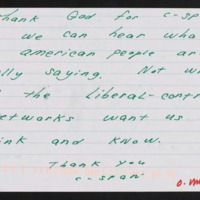 hank God for c-spa
we can hear wha
american people ar
lly saying. Not w
the Liberal-contr
etworks want us
ink and know.
Thank you
c-span